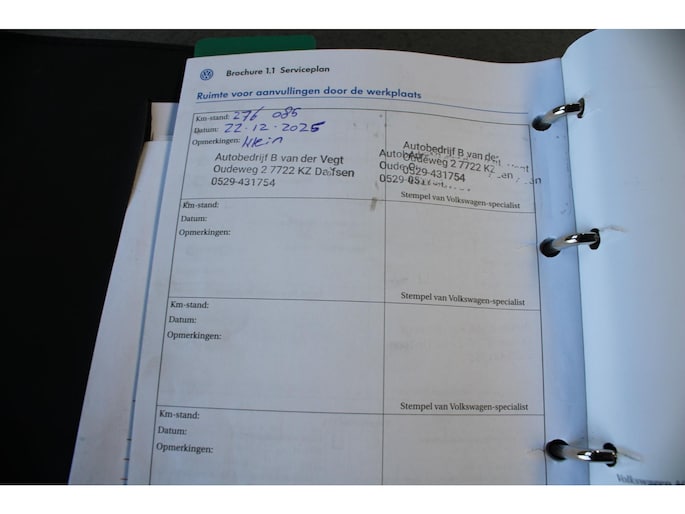 Brochure 1.1 Serviceplan
Ruimte voor aanvullingen door de werkplaats
Km-stand: 276 085
Datum: 22-12-2025
Opmerkingen: klein
Autobedrijf B van der Vegt
Oudeweg 2 7722 KZ Dalfsen
0529-431754
Autobedrijf B van der Vegt
Oudeweg 2 7722 KZ
0529-431754
Stempel van Volkswagen-specialist
Km-stand:
Datum:
Opmerkingen:
Stempel van Volkswagen-specialist
Km-stand:
Datum:
Opmerkingen:
Stempel van Volkswagen-specialist
Km-stand:
Datum:
Opmerkingen:
Volkswagen